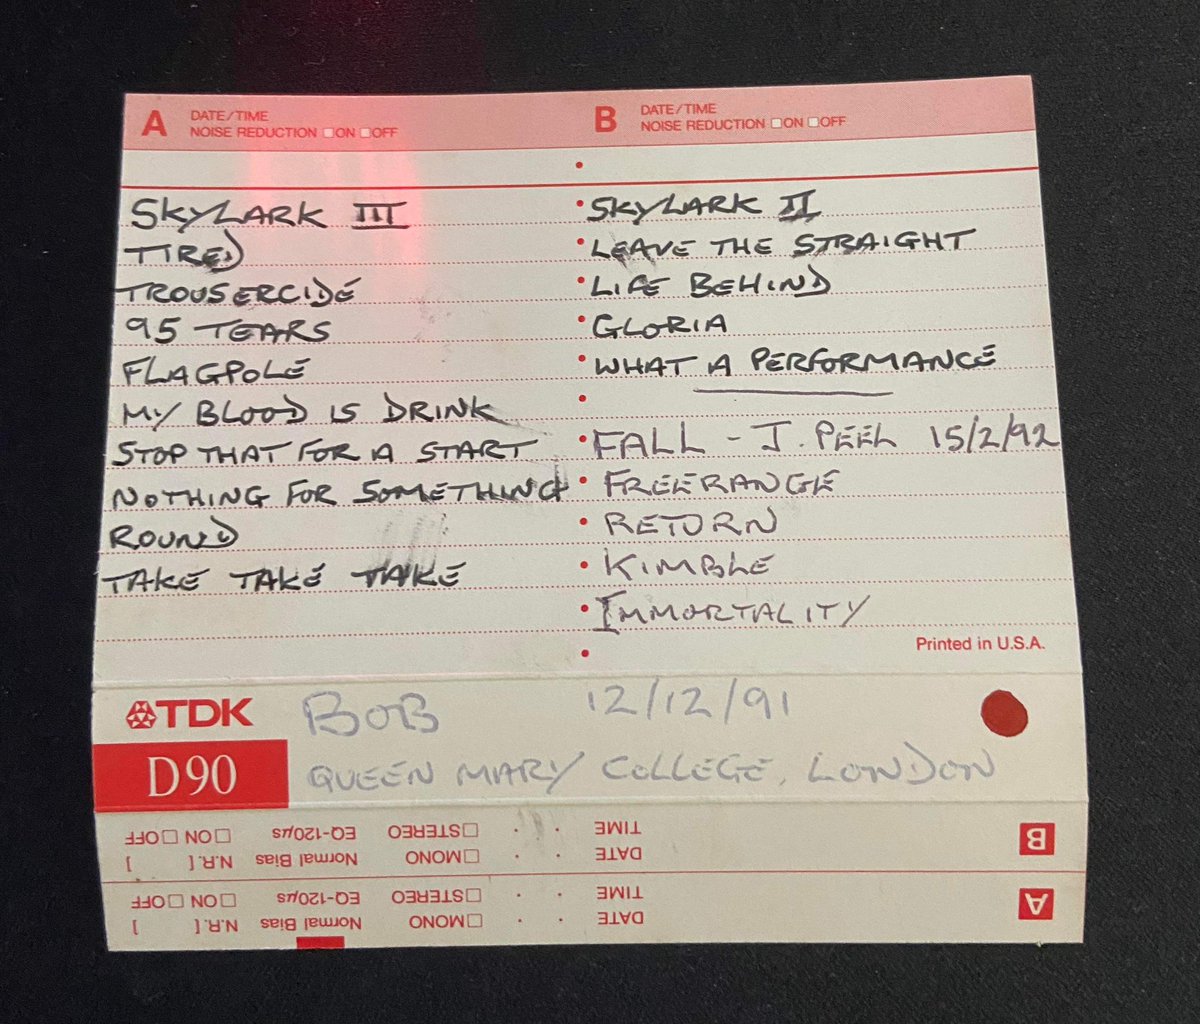 A DATE/TIME
NOISE REDUCTION ON OFF
SKYLARK III
TIRED
TROUSERCIDE
95 TEARS
FLAGPOLE
MY BLOOD IS DRINK
STOP THAT FOR A START
NOTHING FOR SOMETHING
ROUND
TAKE TAKE TAKE
B DATE/TIME
NOISE REDUCTION ON OFF
SKYLARK II
LEAVE THE STRAIGHT
LIFE BEHIND
GLORIA
WHAT A PERFORMANCE
FALL - J. PEEL 15/2/92
FREERANGE
RETURN
KIMBLE
IMMORTALITY
Printed in U.S.A.
TDK BOB 12/12/91
D90 QUEEN MARY COLLEGE, LONDON
A DATE MONO Normal Bias N.R. [ ]
TIME STEREO EQ-120µs ON OFF
B DATE MONO Normal Bias N.R. [ ]
TIME STEREO EQ-120µs ON OFF